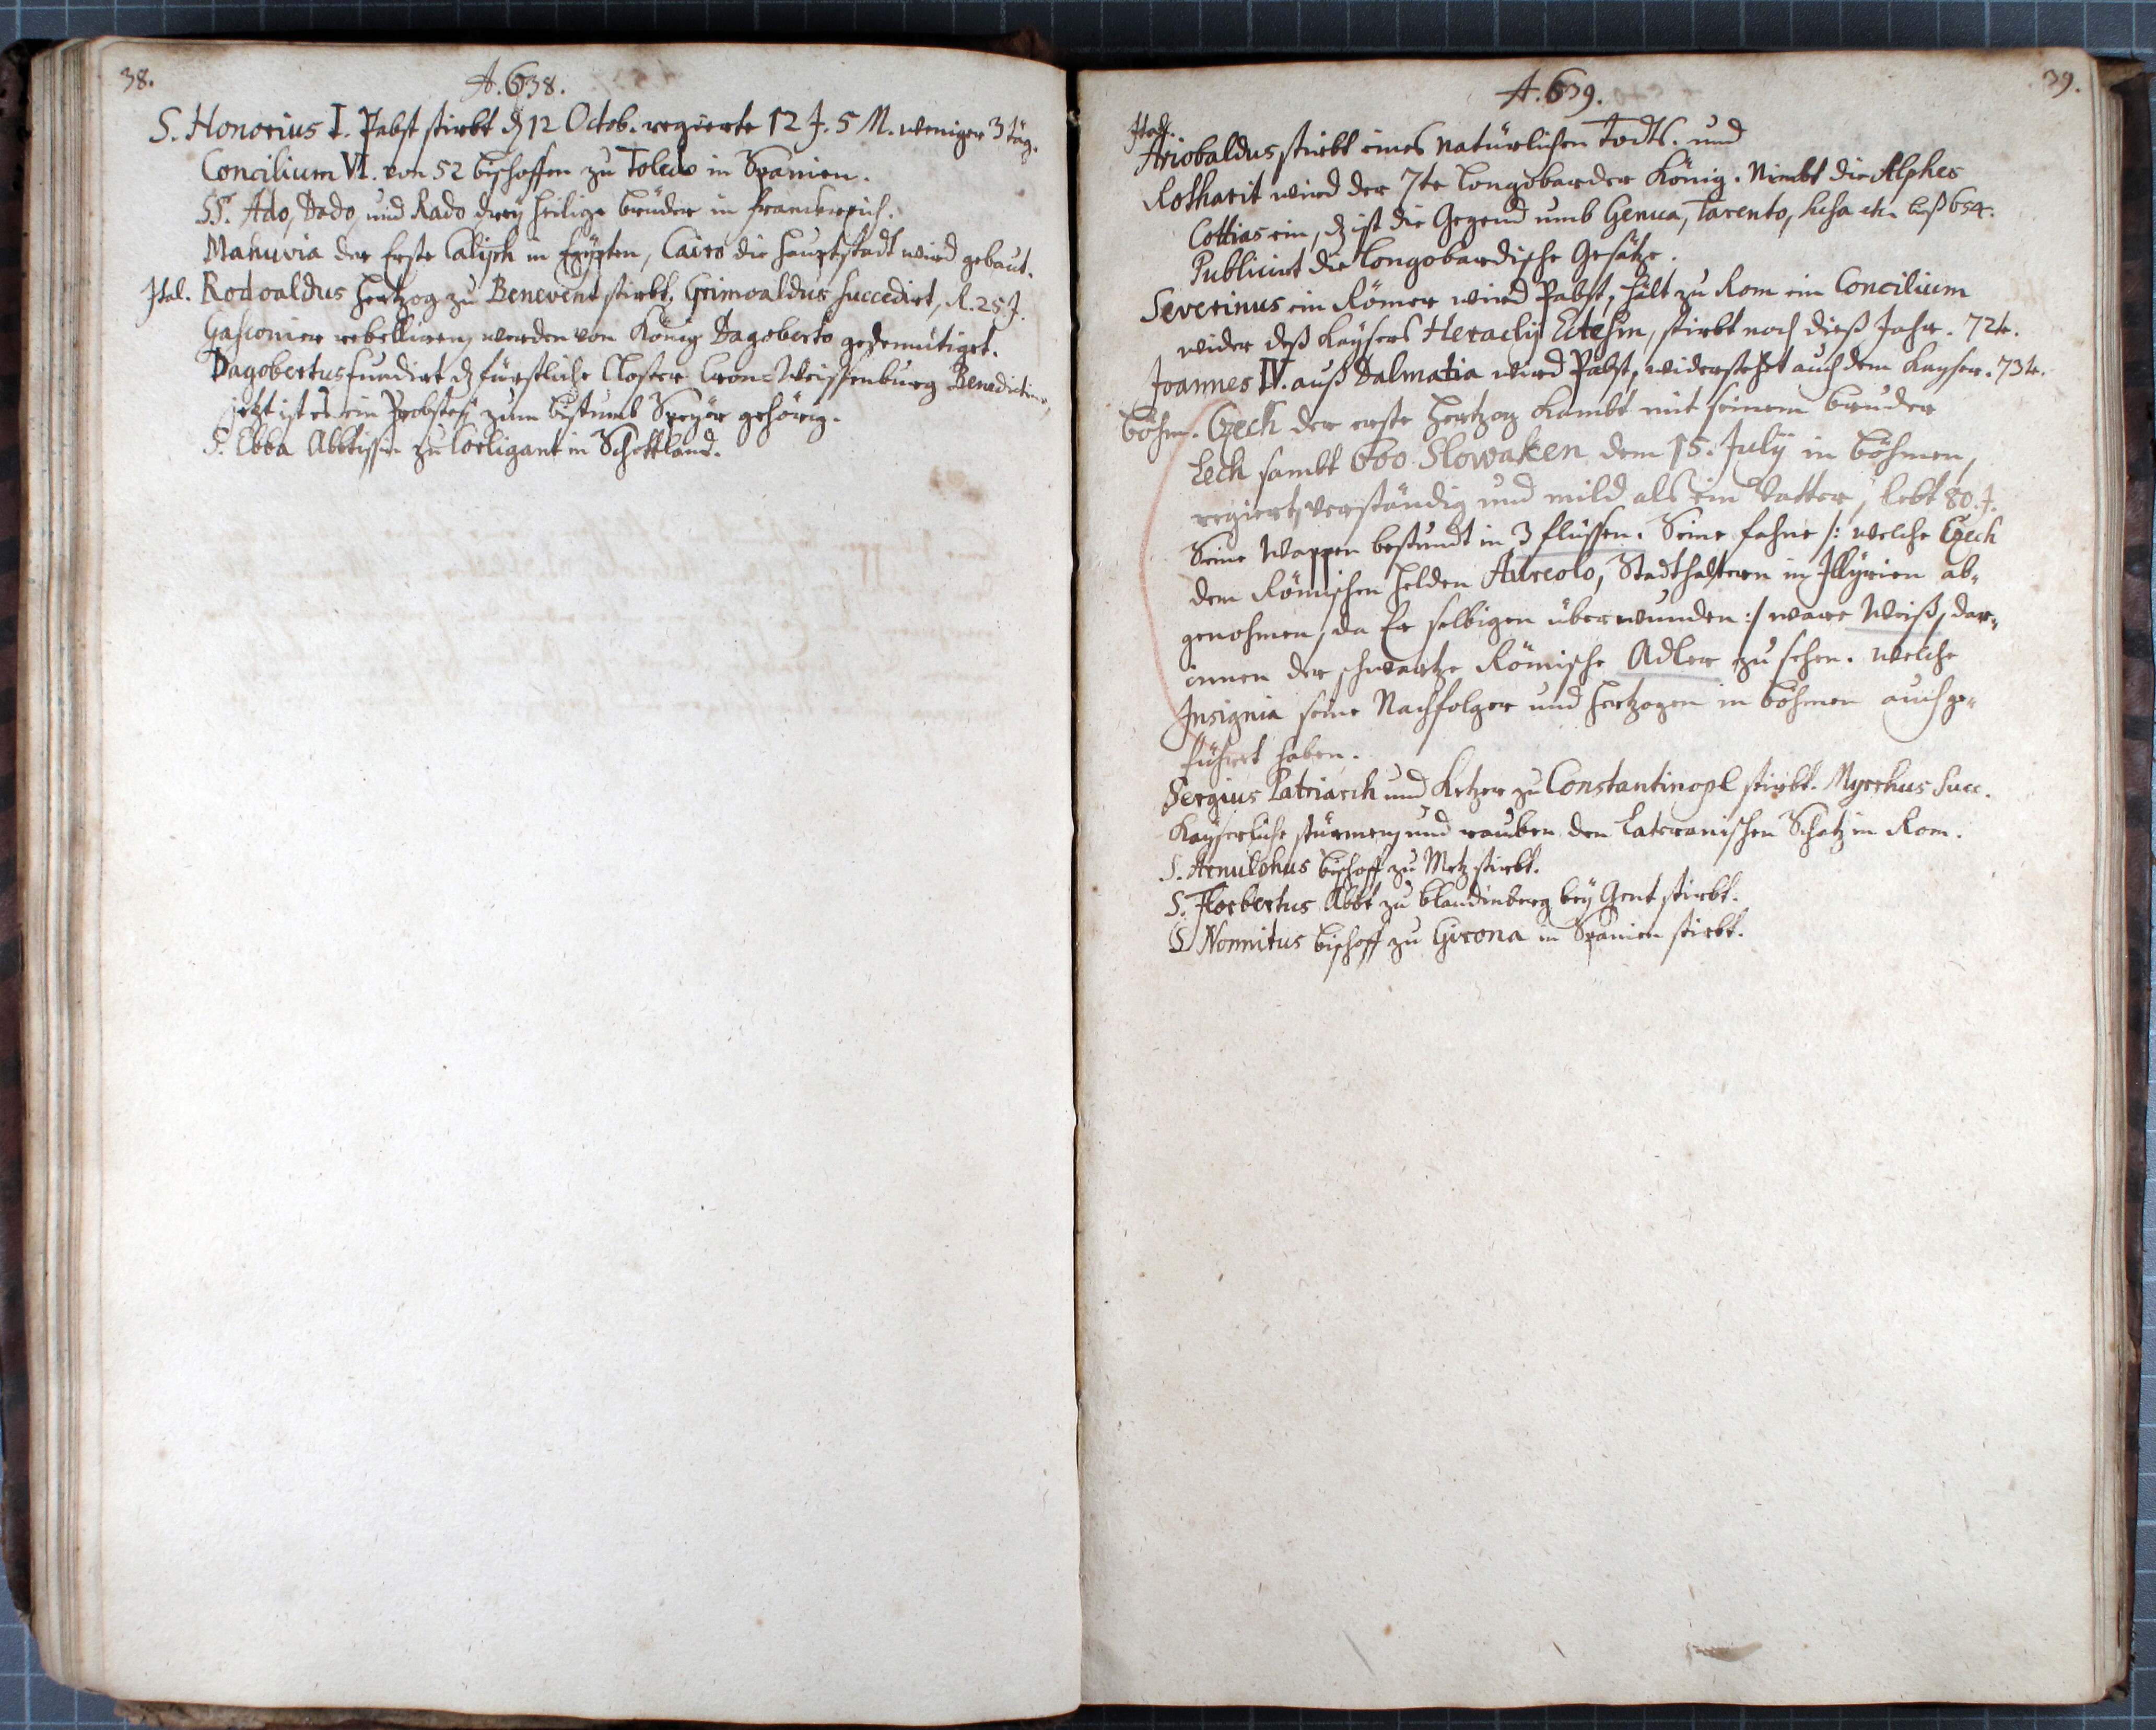 38.
A. 638.
S. Honorius I. Pabst stirbt dz 12 Octob. regierte 12 J. 5 M. weniger 3 täg.
Concilium VI. von 52 bischoffen zu Toledo in Spanien.
SS. Ado, Dado, und Rado drey heilige brüder in franckreich.
Mahuvia der Erste Caliph in Egypten, Cairo die Hauptstadt wird gebaut.
Ital. Rodoaldus Hertzog zu Benevent stirbt, Grimoaldus succedirt, R. 25 J.
Gasconier rebelliren, werden von König Dagoberto gedemütiget.
Dagobertus fundirt dz fürstliche Closter Cron-Weissenburg Benedictiner,
jetzt ist es ein Probstey zum bistumb Speyer gehörig.
S. Ebba Abbtissin zu in Schottland.
39.
A. 639.
Ital.
Ariobaldus stirbt eines natürlichen Todts. und
Rotharit wird der 7te Longobarder König. Nimbt die Alphes
Cottias ein, dz ist die Gegend umb Genua, Tarento, Susa etc. biß 654.
Publicirt die Longobardische Gesätze.
Severinus ein Römer wird Pabst, hält zu Rom ein Concilium
wider deß Kaysers Heraclij Ectesin, stirbt noch dieß Jahr. 72te.
Joannes IV. auß Dalmatia wird Pabst, widerstehet auch dem Kayser. 73te.
böhm. Czech der erste Hertzog kombt mit seinem bruder
Lech sambt 600 Slowaken dem 15. July in böhmen,
regiert verständig und mild als ein Vatter, lebt 80. J.
Seine Wappen bestundt in 3 flüssen. Seine fahne /: welche Czech
dem Römischen helden Aureolo, Stadthaltern in Illyrien ab-
genohmen, da Er selbigen überwunden :/ ware Weiß, dar-
innen der schwartze Römische Adler zu sehen. welche
Insignia seine Nachfolger und Hertzogen in böhmen auch ge-
führt haben.
Sergius Patriarch und Ketzer zu Constantinopl stirbt. Myrrhus Succ.
Kayserliche stürmen, und rauben den Lateranischen Schatz in Rom.
S. Arnulphus bischoff zu Metz stirbt.
S. Florbertus Abbt zu blandinberg bey Gent stirbt.
S. Nonnitus bischoff zu Girona in Spanien stirbt.